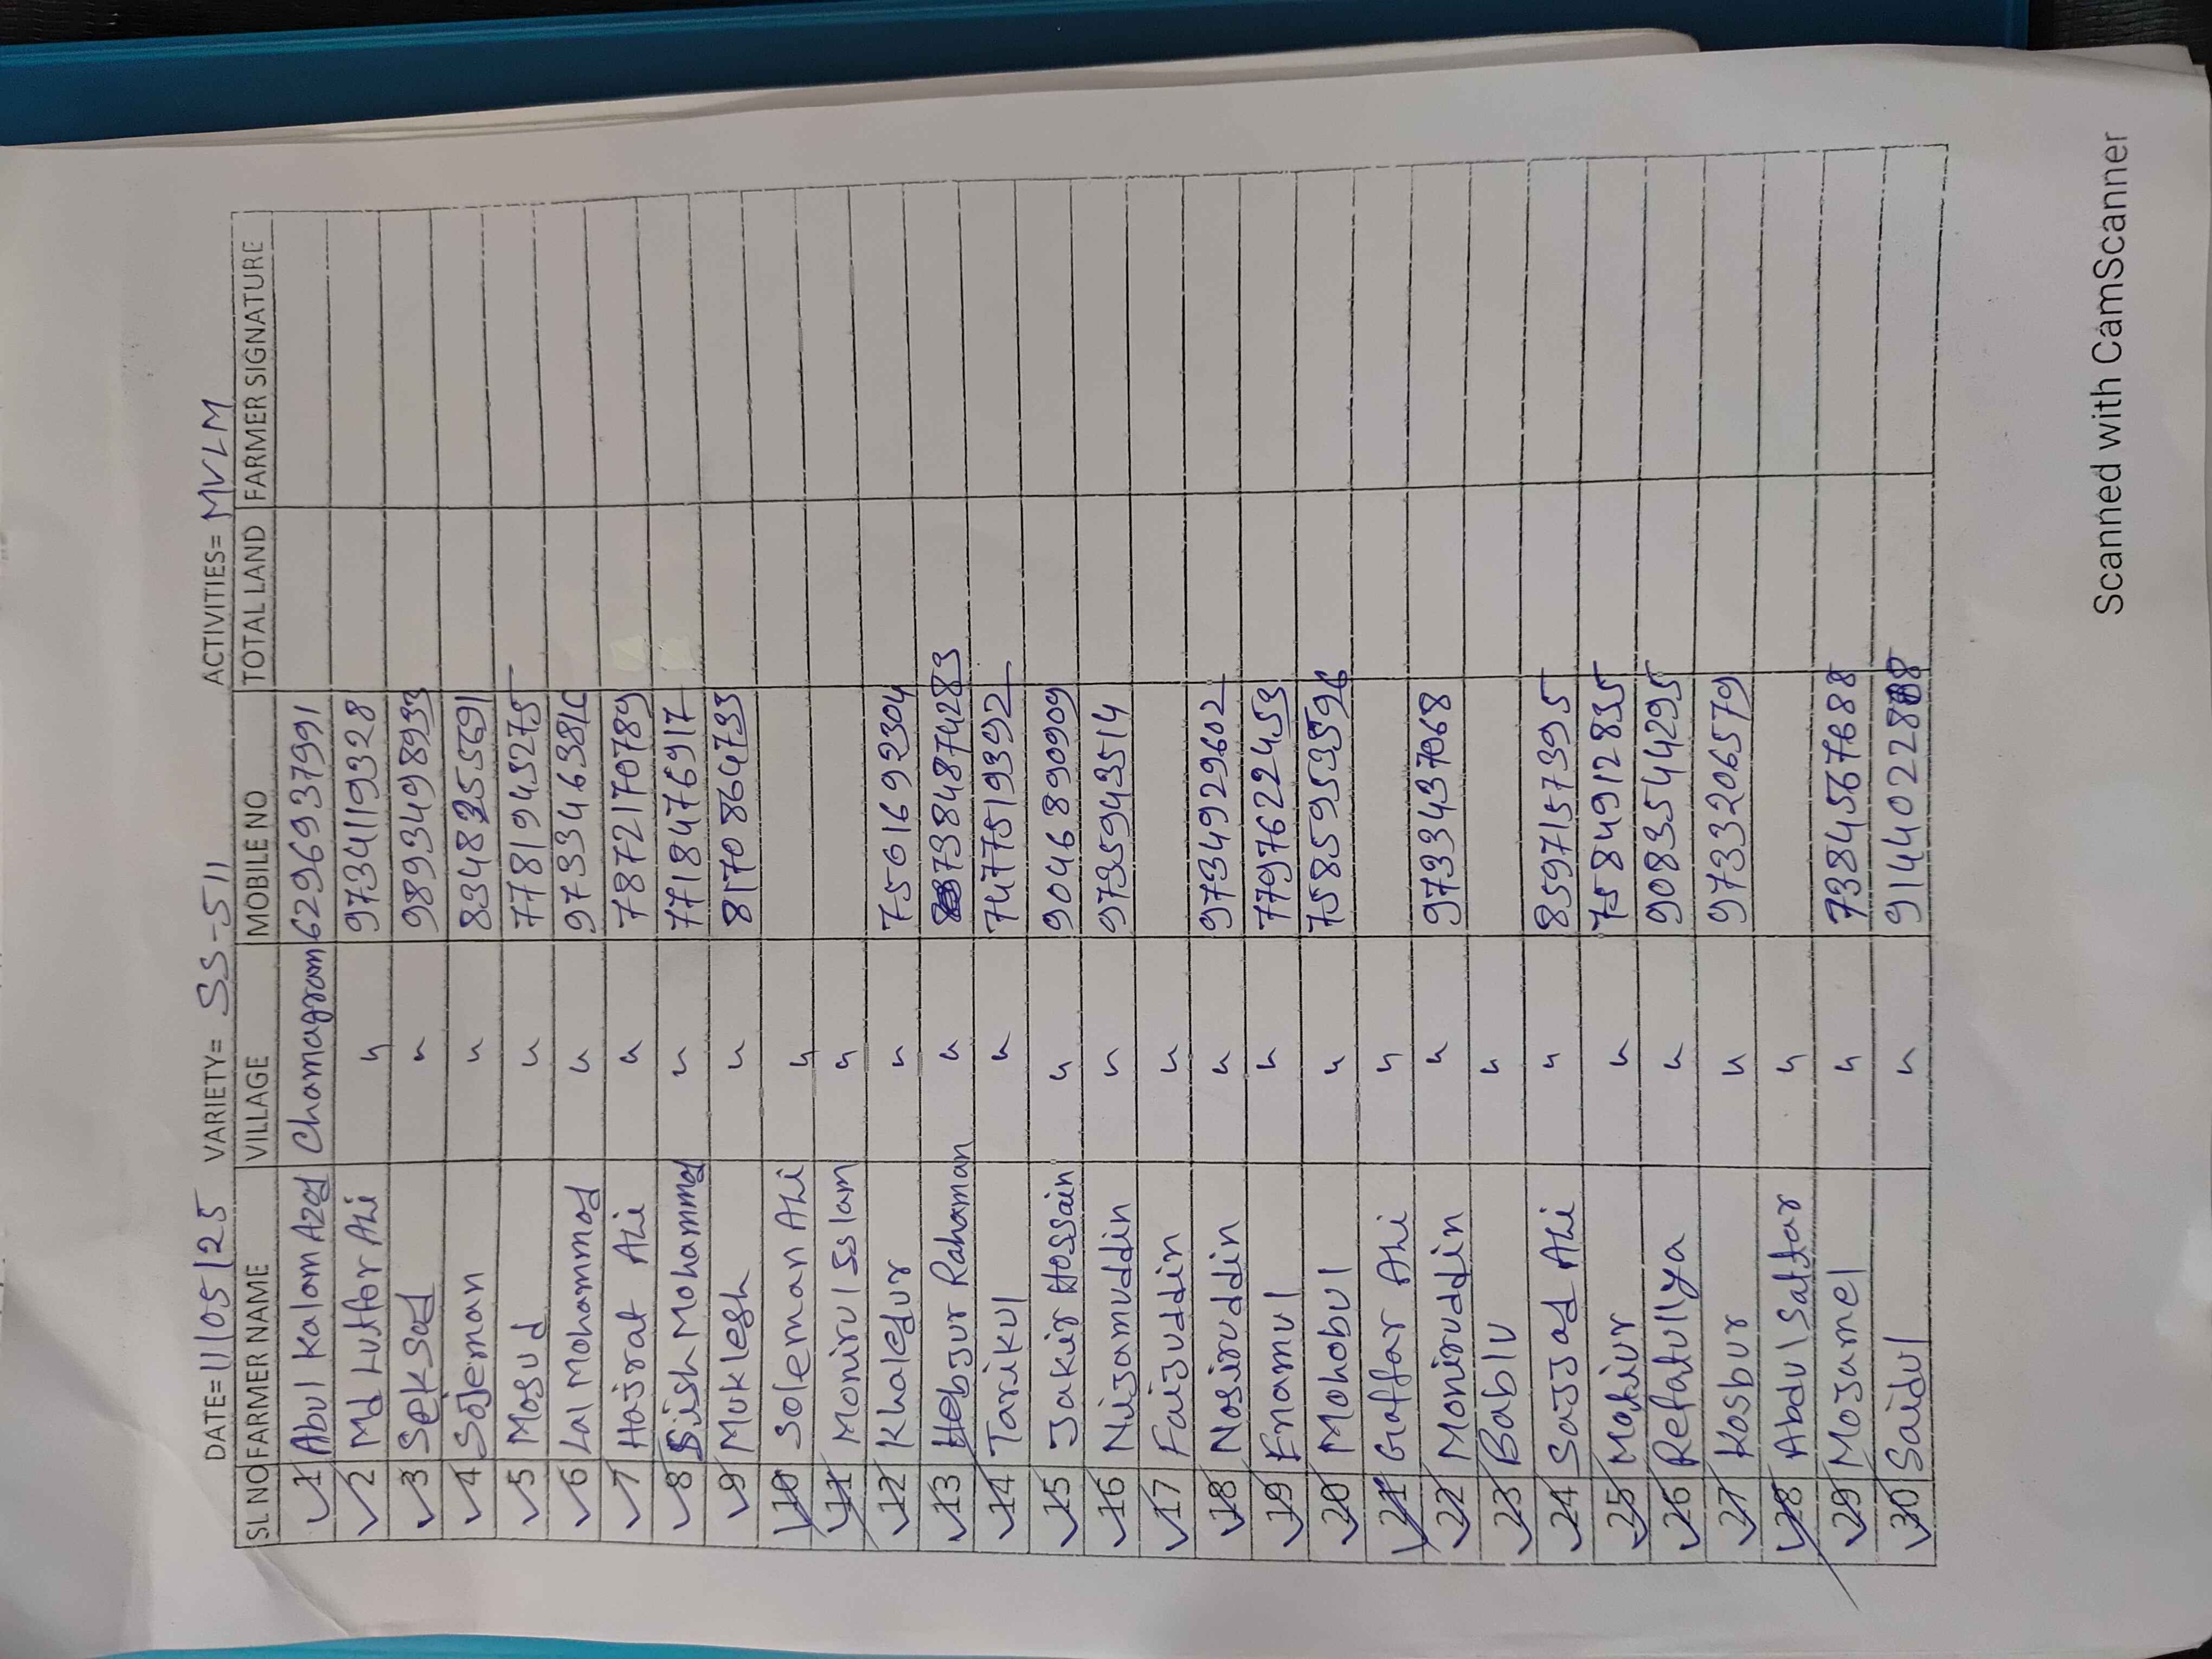 DATE= 11/05/25 VARIETY= SS-511 ACTIVITIES= MVLM
SL NO FARMER NAME VILLAGE MOBILE NO TOTAL LAND FARMER SIGNATURE
1 Abul Kalam Azad Chamagram 6296937991
2 Md Lutfor Ali " 9734119328
3 Seksad " 9893498933
4 Sojeman " 8348255691
5 Masud " 7781943275
6 Lal Mohammad " 973346381
7 Hajrat Ali " 7872170789
8 Bish Mohammad " 7718476917
9 Muklesh " 8170864733
10 Soleman Ali "
11 Monirul Sslam "
12 Khaledur " 7501692304
13 Hebjur Rahaman " 7384874283
14 Tarikul " 7477519392
15 Jakir Hossain " 9046890909
16 Nijamuddin " 9735943514
17 Faijuddin "
18 Nosiruddin " 9734929602
19 Enamul " 7797622453
20 Mohobul " 7585953596
21 Gaffar Ali "
22 Moniruddin " 9733437068
23 Bablu "
24 Sajjad Ali " 8597157395
25 " 7584912835
26 Refatullya " 9083544295
27 Kasbur " 9733206579
28 Abdul Sattar "
29 Mojamel " 7384567688
30 Saidul "
Scanned with CamScanner